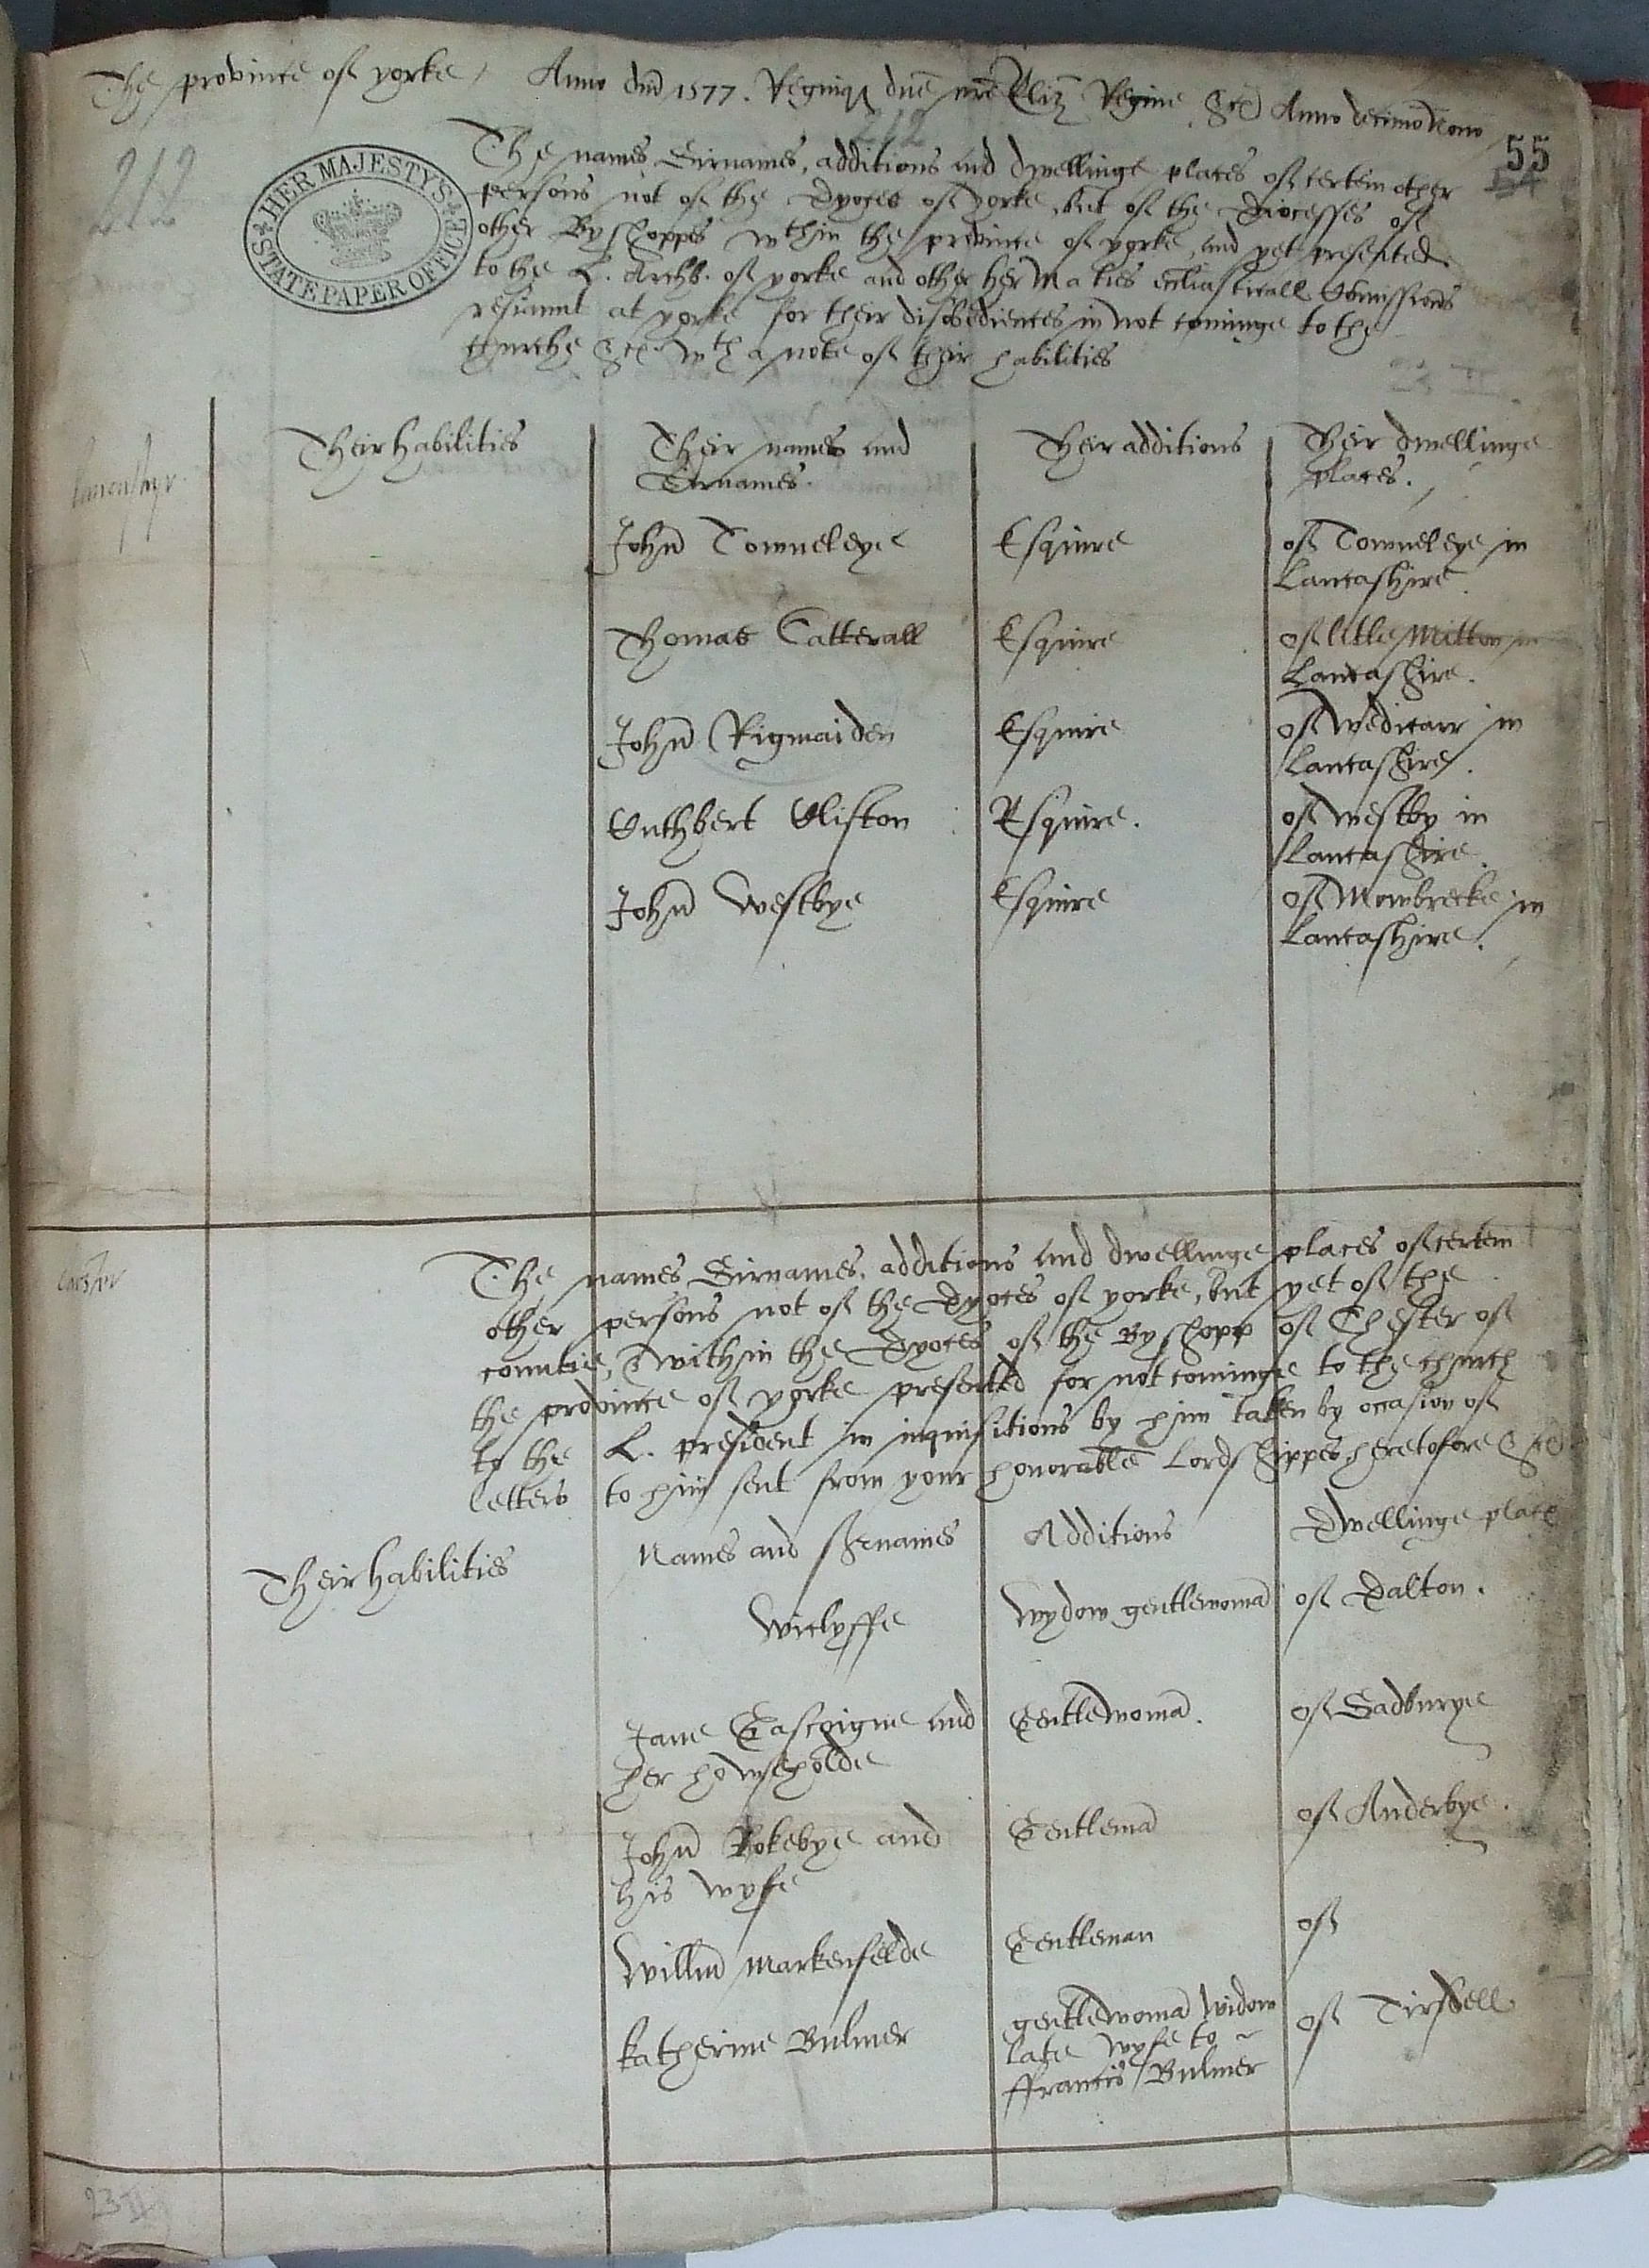 The province of yorke / Anno dni 1577. Regniq dne nre Eliz Regine &c Anno decimo nono
212
212
55
54
HER MAJESTY'S STATE PAPER OFFICE
The names Sirnames, additions and dwellinge places of certein other
persons not of the Dyoces of yorke, but of the Diocesses of
other Byshoppes wthin the province of yorke, and yet presented
to the L. Archb. of yorke and other her Maties eccliasticall Comissions
resiannt at yorke for their disobediences in not cominge to the
churche &c. wth a note of their habilities
Their habilities
Their names and
Sirnames.
Their additions
Their dwellinge
places.
lancashyr
John Towneleye Esquire of Towneleye in
Lancashire
Thomas Catterall Esquire of litle Mitton in
Lancashire.
John Rigmaiden Esquire of Wedicarr in
Lancashire.
Cuthbert Clifton Esquire. of westby in
Lancashire.
John Westbye Esquire of Mowbrecke in
Lancashire.
The names Sirnames, additions and dwellinge places of certein
other persons not of the Dyoces of yorke, but yet of the
countie, & within the Dyoces of the Byshopp of Chester of
the province of yorke presented for not cominge to the church
to the L. president in inquisitions by him taken by occasion of
letters to him sent from your honorable Lordshippes heretofore &c
Their habilities
Names and Sirnames
Additions
Dwellinge place
Wiclyffe Wydow gentlewoma of Dalton.
Jane Gascoigne and Gentlewoma. of Sadburye
her howseholde
John Rokebye and Gentlema of Anderbye.
his wyfe
Willm Markenfelde Gentleman of
Katherine Bulmer gentlewoma widow of Tirsdell
late wyfe to
ffrancis Bulmer